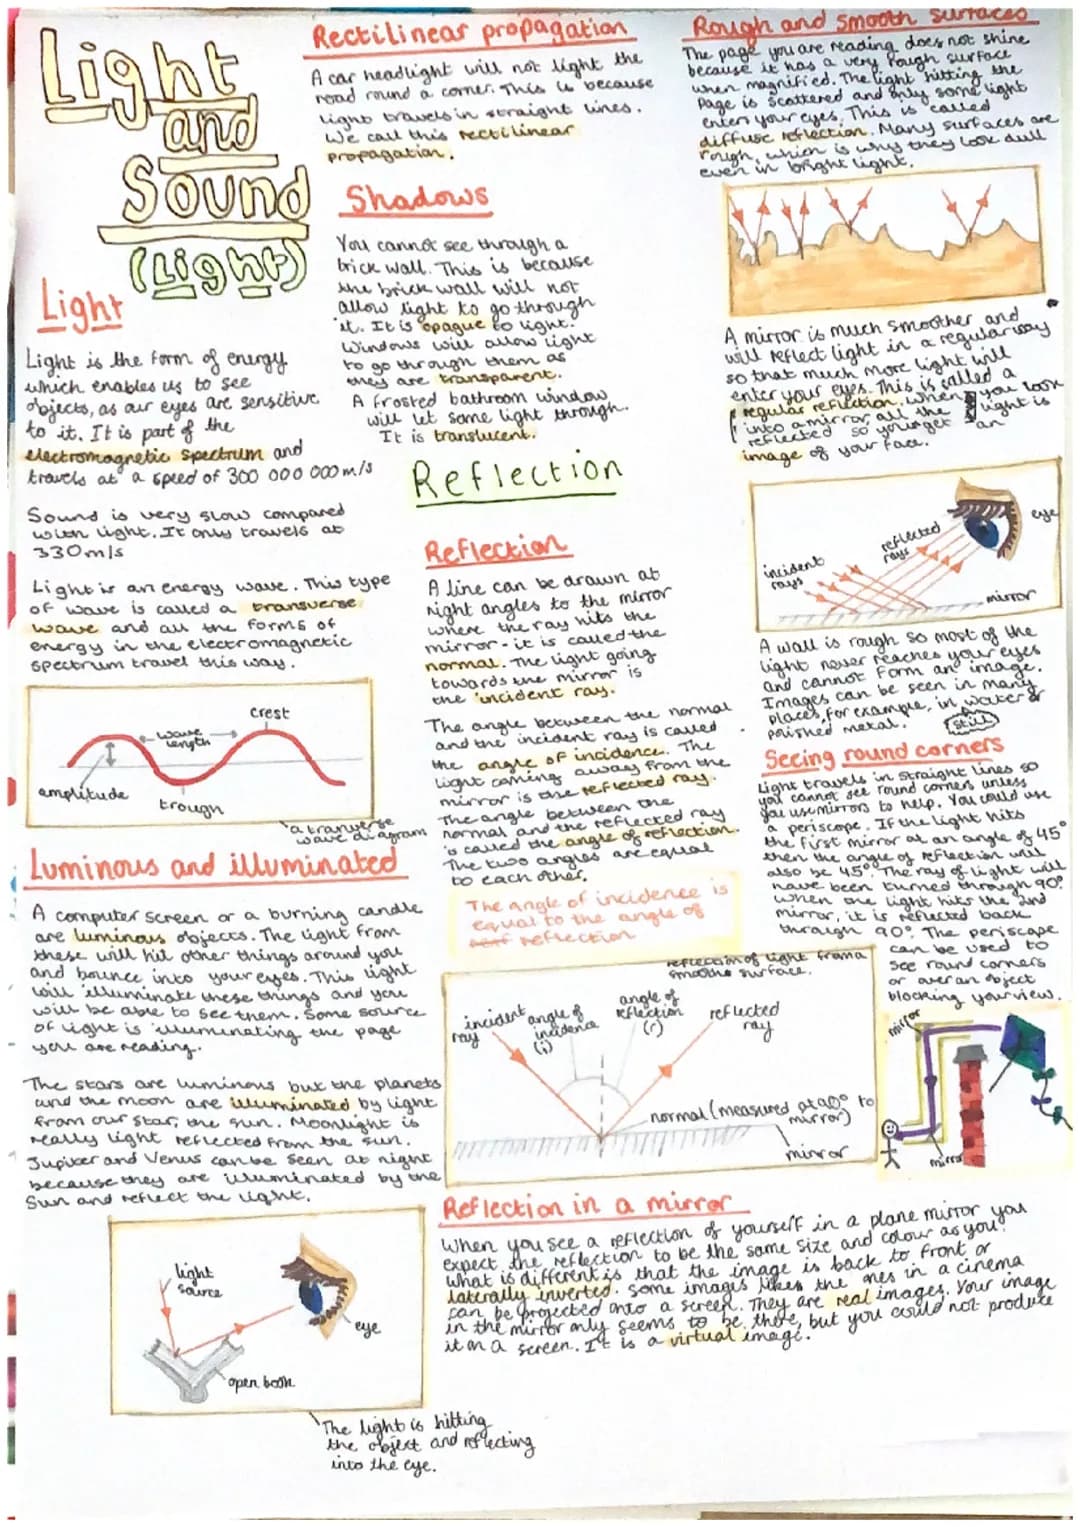 Light
and
Sound
(Light)
Light
Light is the form of energy
which enables us to see
objects, as our eyes are sensitive
to it. It is part of the
electromagnetic spectrum and
travels at a speed of 300 000 000 m/s
Sound is very slow compared
with light. It only travels at
330m/s
Light is an energy wave. This type
of wave is called a transverse
wave and all the forms of
energy in the electromagnetic
spectrum travel this way.
crest
wave
length
amplitude
trough
a tranverse
wave diagram
Luminous and illuminated
A computer screen or a burning candle
are luminous objects. The light from
these will hit other things around you
and bounce into your eyes. This light
will illuminate these things and you
will be able to see them. Some source
of light is illuminating the page
you are reading.
The stars are luminous but the planets
and the moon are illuminated by light
from our star, the sun. Moonlight is
really light reflected from the sun.
Jupiter and Venus can be seen at night
because they are illuminated by the
Sun and reflect the light.
light
source
eye
open book
The light is hitting
the object and reflecting
into the eye.
Rectilinear propagation
A car headlight will not light the
road round a corner. This is because
light travels in straight lines.
We call this rectilinear
propagation.
Shadows
You cannot see through a
brick wall. This is because
the brick wall will not
allow light to go through
it. It is opaque to light.
Windows will allow light
to go through them as
they are transparent.
A frosted bathroom window
will let some light through.
It is translucent.
Reflection
Reflection
A line can be drawn at
right angles to the mirror
where the ray hits the
mirror - it is called the
normal. The light going
towards the mirror is
the incident ray.
The angle between the normal
and the incident ray is called
the angle of incidence. The
light coming away from the
mirror is the reflected ray.
The angle between the
normal and the reflected ray
is called the angle of reflection.
The two angles are equal
to each other.
The angle of incidence is
equal to the angle of
reflection
reflection of light from a
smooth surface.
incident
ray
angle of
incidence
(i)
angle of
reflection
(r)
reflected
ray
normal (measured at 90° to
mirror)
mirror
Reflection in a mirror
When you see a reflection of yourself in a plane mirror you
expect the reflection to be the same size and colour as you.
What is different is that the image is back to front or
laterally inverted. Some images likes the ones in a cinema
can be projected onto a screen. They are real images. Your image
in the mirror only seems to be there, but you could not produce
it on a screen. It is a virtual image.
Rough and smooth surfaces
The page you are reading does not shine
because it has a very rough surface
when magnified. The light hitting the
page is scattered and only some light
enters your eyes. This is called
diffuse reflection. Many surfaces are
rough, which is why they look dull
even in bright light.
A mirror is much smoother and
will reflect light in a regular way
so that much more light will
enter your eyes. This is called a
regular reflection. When you look
into a mirror, all the light is
reflected so you get an
image of your face.
eye
reflected
rays
incident
rays
mirror
A wall is rough so most of the
light never reaches your eyes
and cannot form an image.
Images can be seen in many
places, for example, in water or
polished metal. still
Seeing round corners
Light travels in straight lines so
you cannot see round corners unless
you use mirrors to help. You could use
a periscope. If the light hits
the first mirror at an angle of 45°
then the angle of reflection will
also be 45°. The ray of light will
have been turned through 90°.
When the light hits the 2nd
mirror, it is reflected back
through 90°. The periscope
can be used to
see round corners
or over an object
blocking your view.
mirror
mirror